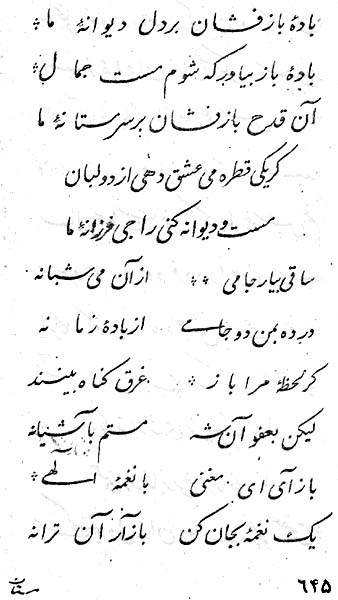 بادهٔ باز فشان بر دل دیوانهٔ ما
بادهٔ باز بیاور که شوم مست جمال
آن قدح باز فشان بر سر مستانهٔ ما
گر یکی قطره می عشق دهی از دو لبان
مست و دیوانه کنی راجی فرزانهٔ ما
ساقی بیار جامی ** از آن می شبانه
در ده بمن دو جامے از بادهٔ زمانه
گر لحظهٔ مرا باز * غرق گناه بینند
لیکن بعفو آن شه مستم بآشیانه
باز آی ای مغنی با نغمهٔ الهے
یک نغمهٔ بجان کن باز آر آن ترانه
۶۴۵